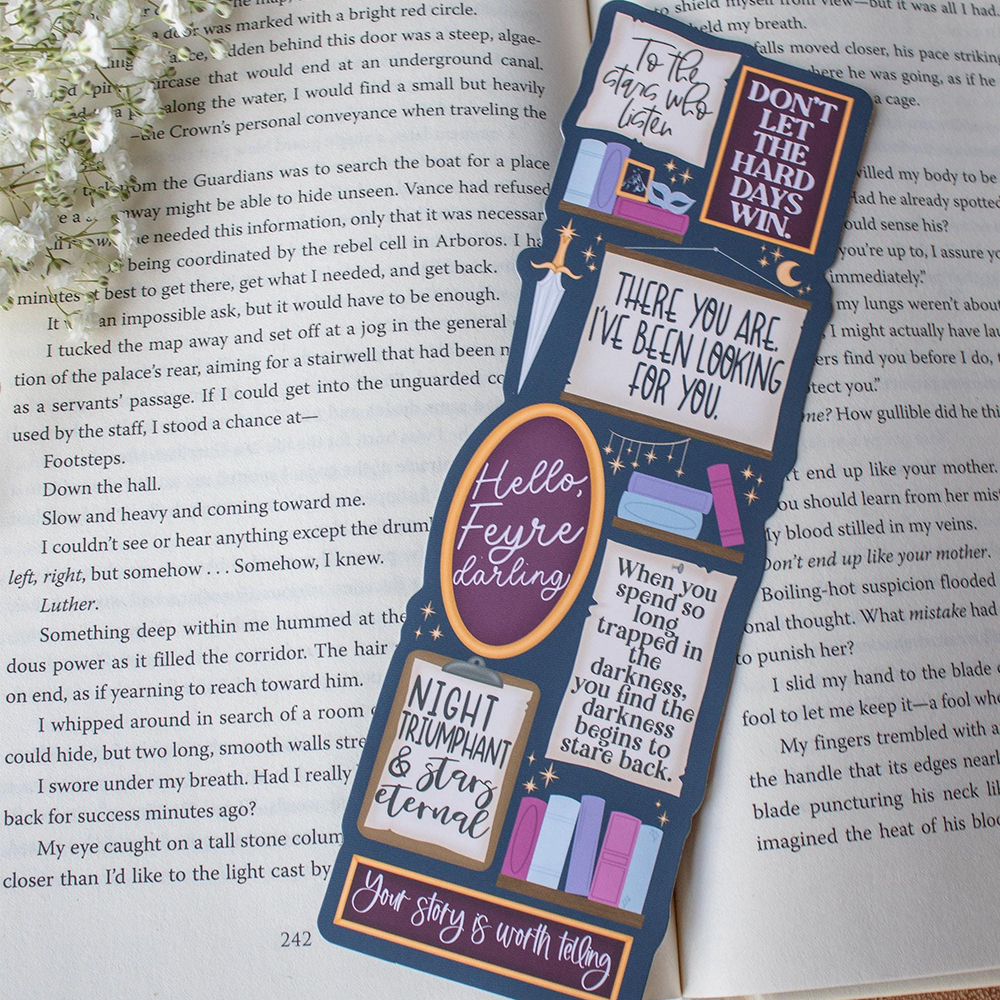 door was marked with a bright red circle.
hidden behind this door was a steep, algae-
staircase that would end at an underground canal.
along the water, I would find a small but heavily
—the Crown's personal conveyance when traveling the
from the Guardians was to search the boat for a place
way might be able to hide unseen. Vance had refused
needed this information, only that it was necessary
being coordinated by the rebel cell in Arboros. I
minutes at best to get there, get what I needed, and get back.
It an impossible ask, but it would have to be enough.
I tucked the map away and set off at a jog in the general
tion of the palace's rear, aiming for a stairwell that had been
as a servants' passage. If I could get into the unguarded
used by the staff, I stood a chance at—
Footsteps.
Down the hall.
Slow and heavy and coming toward me.
I couldn't see or hear anything except the
left, right, but somehow . . . Somehow, I knew.
Luther.
Something deep within me hummed at the
dous power as it filled the corridor. The hair
on end, as if yearning to reach toward him.
I whipped around in search of a room
could hide, but two long, smooth walls
I swore under my breath. Had I really
back for success minutes ago?
My eye caught on a tall stone
closer than I'd like to the light cast by
242
To the
stars who
listen
DON'T
LET
THE
HARD
DAYS
WIN.
THERE YOU ARE.
I'VE BEEN LOOKING
FOR YOU.
Hello,
Feyre
darling
When you
spend so
long
trapped in
the
darkness,
you find the
darkness
begins to
stare back.
NIGHT
TRIUMPHANT
& stars
eternal
Your story is worth telling
to shield myself from view—but it was all I had.
held my breath.
falls moved closer, his pace
where he was going, as if he
a cage.
willed my body to be
Had he already spotted
could sense his?
you're up to, I assure
immediately."
my lungs weren't about
I might actually have
find you before I do,
"
me? How gullible did he
end up like your mother.
should learn from her
My blood stilled in my veins.
Don't end up like your mother.
Boiling-hot suspicion flooded
thought. What mistake had
to punish her?
I slid my hand to the blade
fool to let me keep it—a fool
My fingers trembled with a
the handle that its edges
blade puncturing his neck
imagined the heat of his